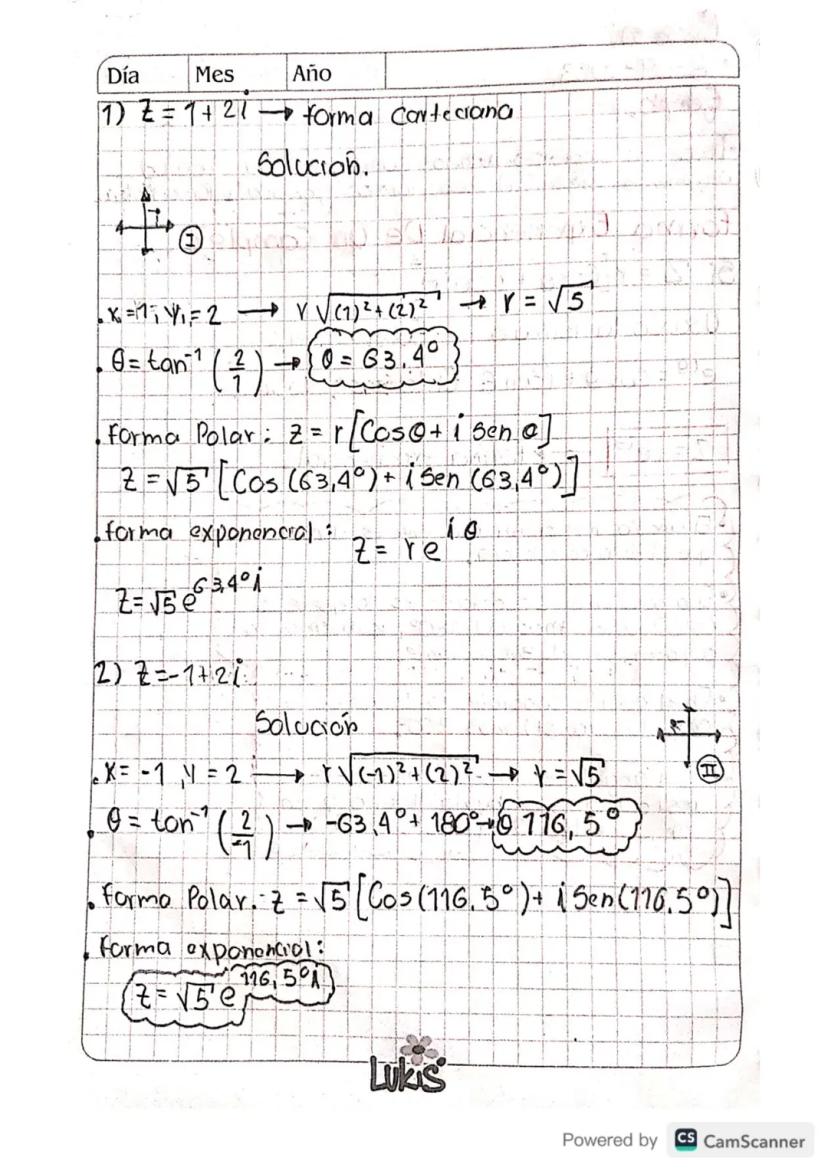 Día Mes Año
1) Z = 1 + 2i → forma Carteciana
Solución.
I
. x = 1; y = 2 → r √(1)² + (2)² → r = √5
. θ = tan⁻¹ (2/1) → θ = 63.4°
. Forma Polar: Z = r [Cos θ + i Sen θ]
Z = √5 [Cos (63,4°) + i Sen (63,4°)]
. forma exponencial: Z = r e^iθ
Z = √5 e^63,4°i
2) Z = -1 + 2i
Solución
. X = -1, y = 2 → r √(-1)² + (2)² → r = √5
II
. θ = tan⁻¹ (2/-1) → -63,4° + 180° → θ 116,5°
. forma Polar: Z = √5 [Cos (116.5°) + i Sen (116.5°)]
. forma exponencial:
Z = √5 e^116,5°i
LUKIS
Powered by CS CamScanner